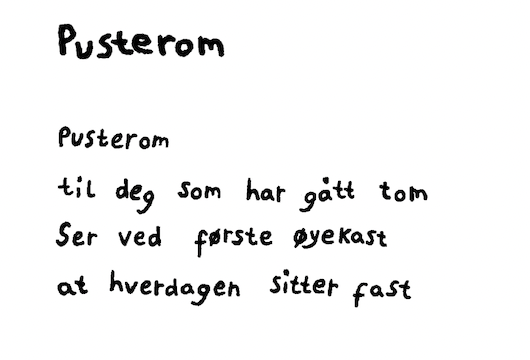 Pusterom
Pusterom
til deg som har gått tom
Ser ved første øyekast
at hverdagen sitter fast